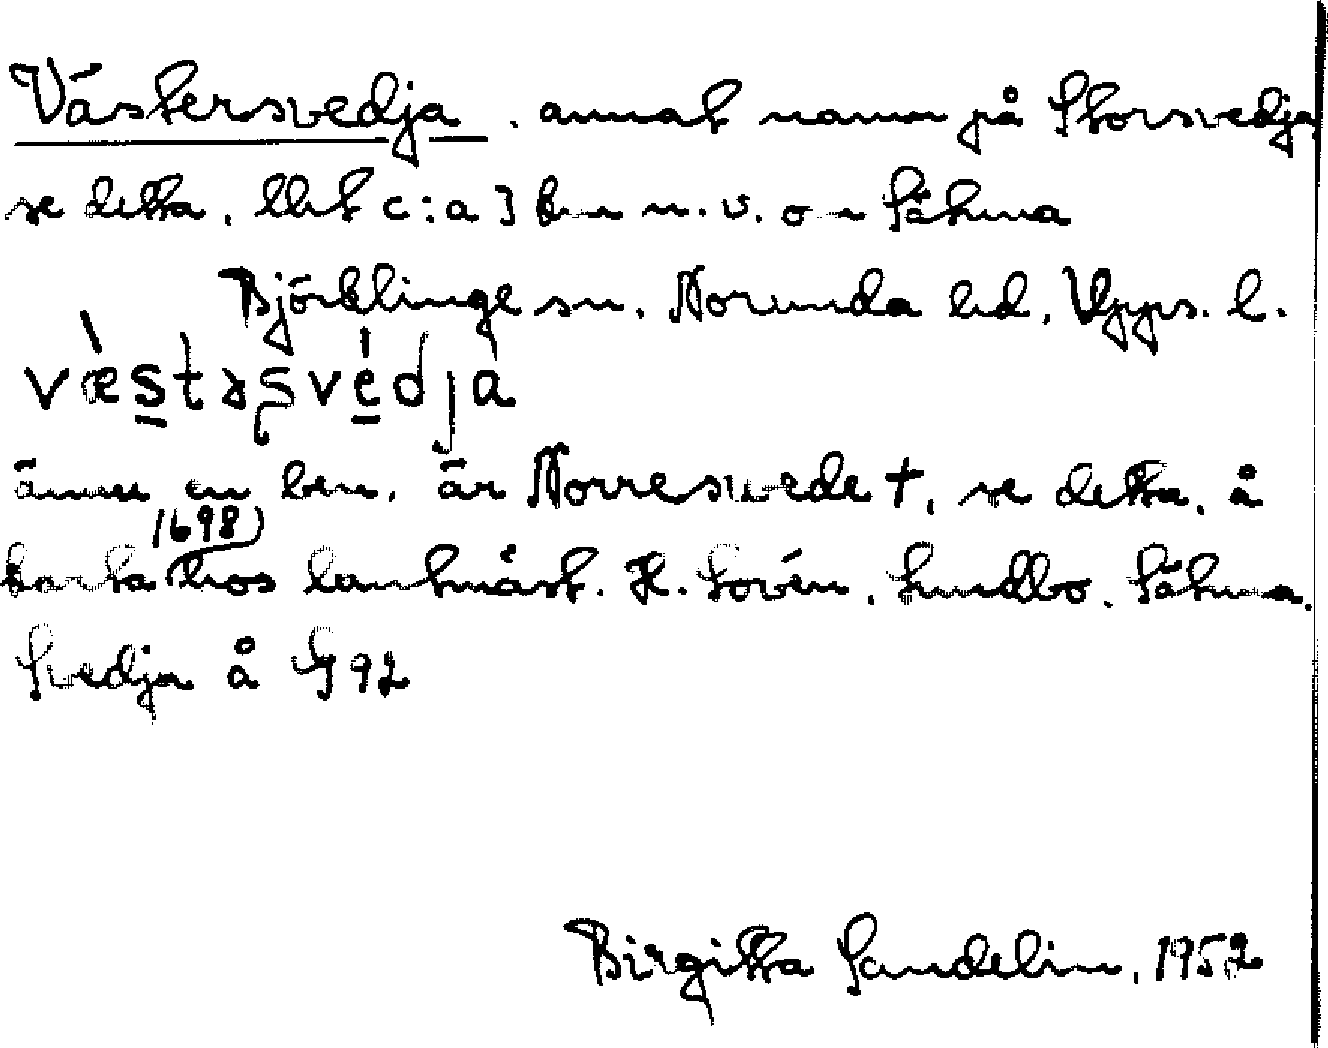 Västersvedja, annat namn på Storsvedja
se detta, litet c:a 3 km n.v. om Sätuna
Björklinge sn. Norunda hd, Upps. l.
væ̀stəʂvédjà
ännu en ben. är Norreswedet, se detta, å
karta (1698) hos lantmäst. H. Lovén, Lundbo, Sätuna.
Svedja å G 92
Birgitta Sandelin, 1952